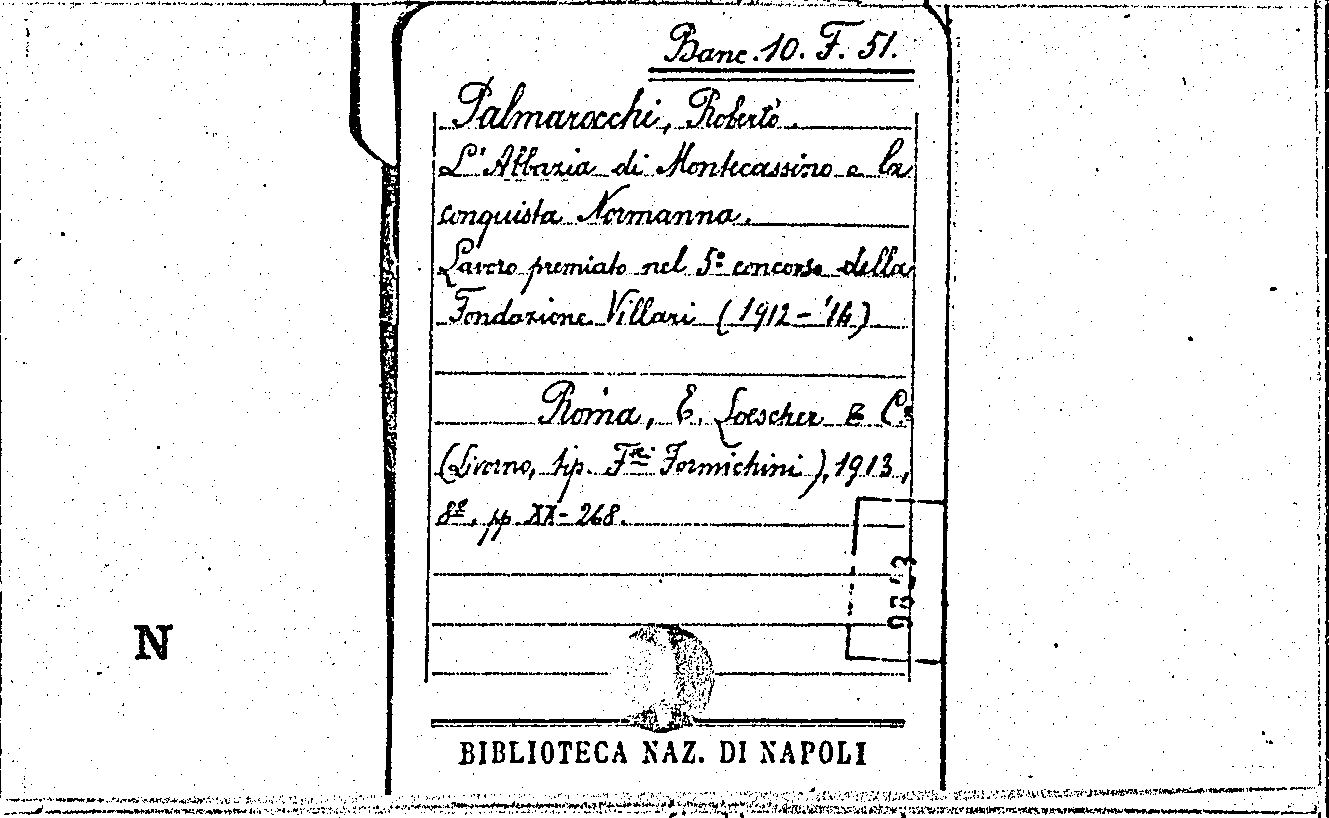 Banc. 10. F. 51.
Palmarocchi, Roberto.
L'Abbazia di Montecassino e la
conquista Normanna.
Lavoro premiato nel 5º concorso della
Fondazione Villari (1912-'14)
Roma, E. Loescher e C.º
(Livorno, tip. F.lli Formichini), 1913,
8º, pp. XX-268.
N
BIBLIOTECA NAZ. DI NAPOLI